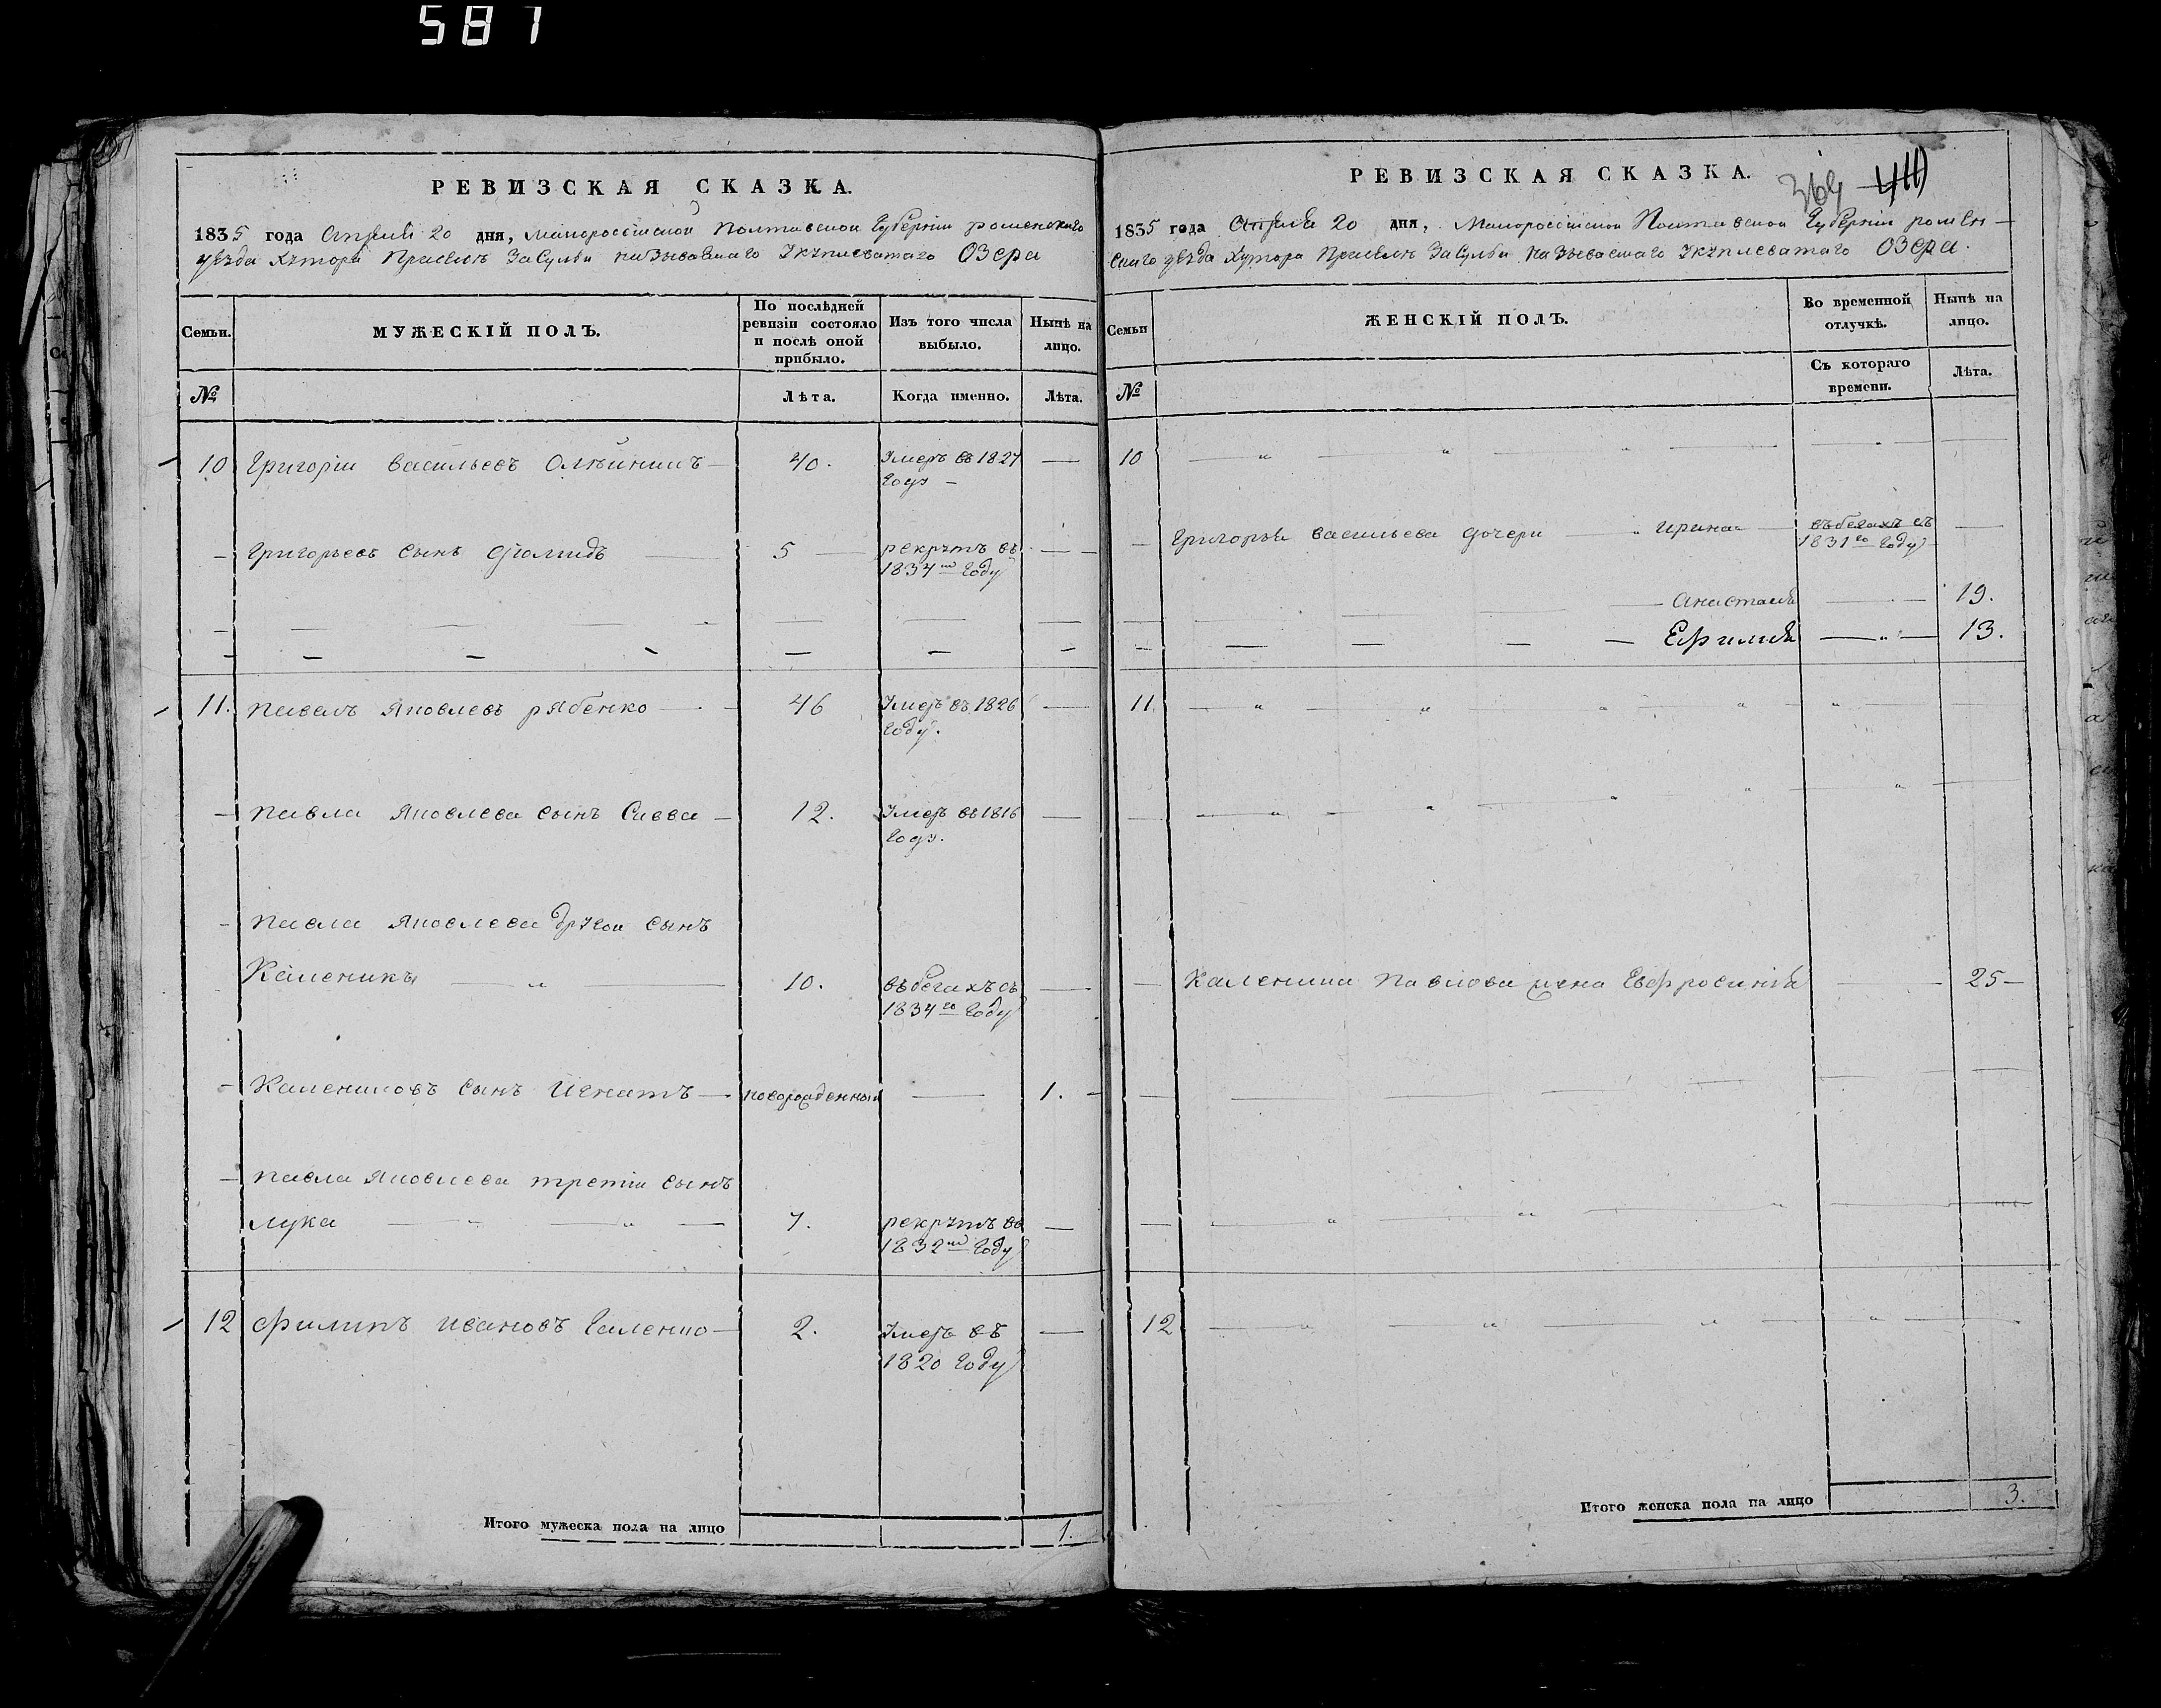 587
РЕВИЗСКАЯ СКАЗКА.
1835 года Апреля 20 дня, Малороссійской Полтавской Губерніи роменского
уезда Хутора При селе Засулье називаемаго Озера
Семьи.
МУЖЕСКІЙ ПОЛЪ.
По послѣдней ревизіи состояло и послѣ оной прибыло.
Изъ того числа выбыло.
Нынѣ на лицо.
№
Лѣта.
Когда именно.
Лѣта.
10 Григорій Васильевъ 40. Умеръ въ 1827
году
Григорьевъ сынъ Діомидъ 5 рекрутъ въ
1834 м году
11. Павелъ Яковлевъ рябенко 46 Умеръ въ 1826
году.
Павла Яковлева сынъ Савва 12. Умеръ въ 1816
году.
Павла Яковлева другой сынъ
Каленикъ 10. въ бегахъ съ
1834 го году
Калениковъ сынъ Игнатъ новорожденный 1.
Павла Яковлева третій сынъ
Лука 7. рекрутъ въ
1832 м году
12 Филипъ Ивановъ Галенко 2. Умеръ въ
1820 году
Итого мужеска пола на лицо 1.
РЕВИЗСКАЯ СКАЗКА.
369
1835 года Апреля 20 дня, Малороссійской Полтавской Губерніи ромен-
скаго уезда Хутора При селе Засулье називаемаго Озера.
Семьи
ЖЕНСКІЙ ПОЛЪ.
Во временной отлучкѣ.
Нынѣ на лицо.
№
Съ котораго времени.
Лѣта.
10
Григорья Васильева дочери Ирина въ бегахъ съ
1831 го году
Анастасія 19.
Ефимія 13.
11.
Каленика Павлова жена Евфросинія 25
12
Итого женска пола на лицо 3.